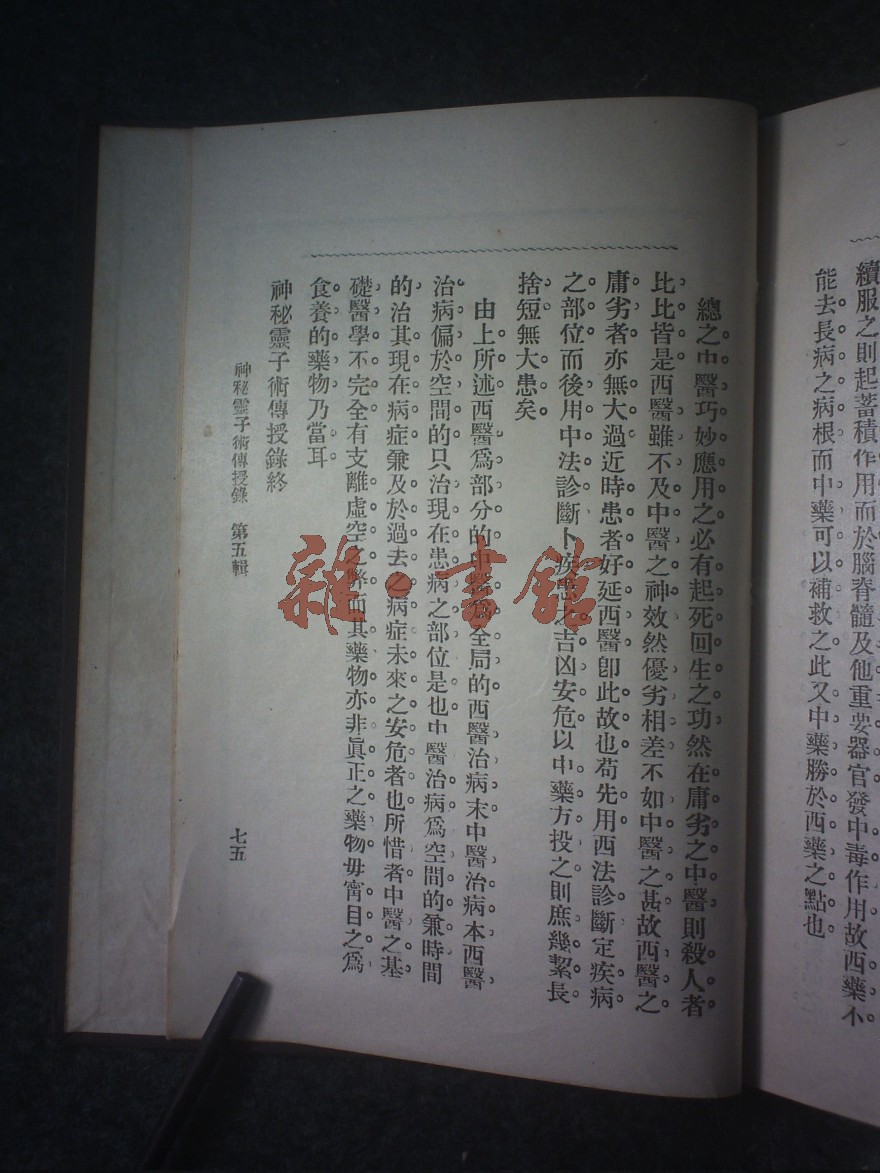 續服之則起蓄積作用而於腦脊髓及他重要器官發中毒作用故西藥不
能去長病之病根而中藥可以補救之此又中藥勝於西藥之點也
總之中醫巧妙應用之必有起死回生之功然在庸劣之中醫則殺人者
比比皆是西醫雖不及中醫之神效然優劣相差不如中醫之甚故西醫之
庸劣者亦無大過近時患者好延西醫卽此故也苟先用西法診斷定疾病
之部位而後用中法診斷卜疾患之吉凶安危以中藥方投之則庶幾絜長
捨短無大患矣
由上所述西醫爲部分的中醫爲全局的西醫治病末中醫治病本西醫
治病偏於空間的只治現在患病之部位是也中醫治病爲空間的兼時間
的治其現在病症兼及於過去之病症未來之安危者也所惜者中醫之基
礎醫學不完全有支離虛空之弊而其藥物亦非眞正之藥物毋甯目之爲
食養的藥物乃當耳
神秘靈子術傳授錄終
神秘靈子術傳授錄 第五輯
七五
雜·書館